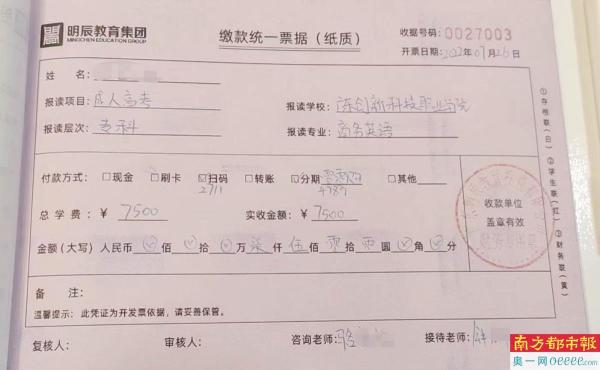 明辰教育集团
MINGCHEN EDUCATION GROUP
缴款统一票据（纸质）
收据号码：0027003
开票日期：2022年07月26日
姓 名：
报读项目：成人高考
报读学校：广东创新科技职业学院
报读层次：专科
报读专业：商务英语
付款方式：□现金 □刷卡 ☑扫码 □转账 ☑分期 □其他
2711 4789
总 学 费：￥ 7500 实收金额：￥ 7500
金额（大写）人民币 ⊗ 佰 ⊗ 拾 ⊗ 万 柒 仟 伍 佰 零 拾 零 圆 ⊗ 角 ⊗ 分
收款单位
盖章有效
①存根联（白）②学生联（红）③财务联（黄）
备 注：
温馨提示：此凭证为开发票依据，请妥善保管。
复核人： 审核人： 咨询老师：骆 接待老师：
南方都市报
奥一网oeeee.com